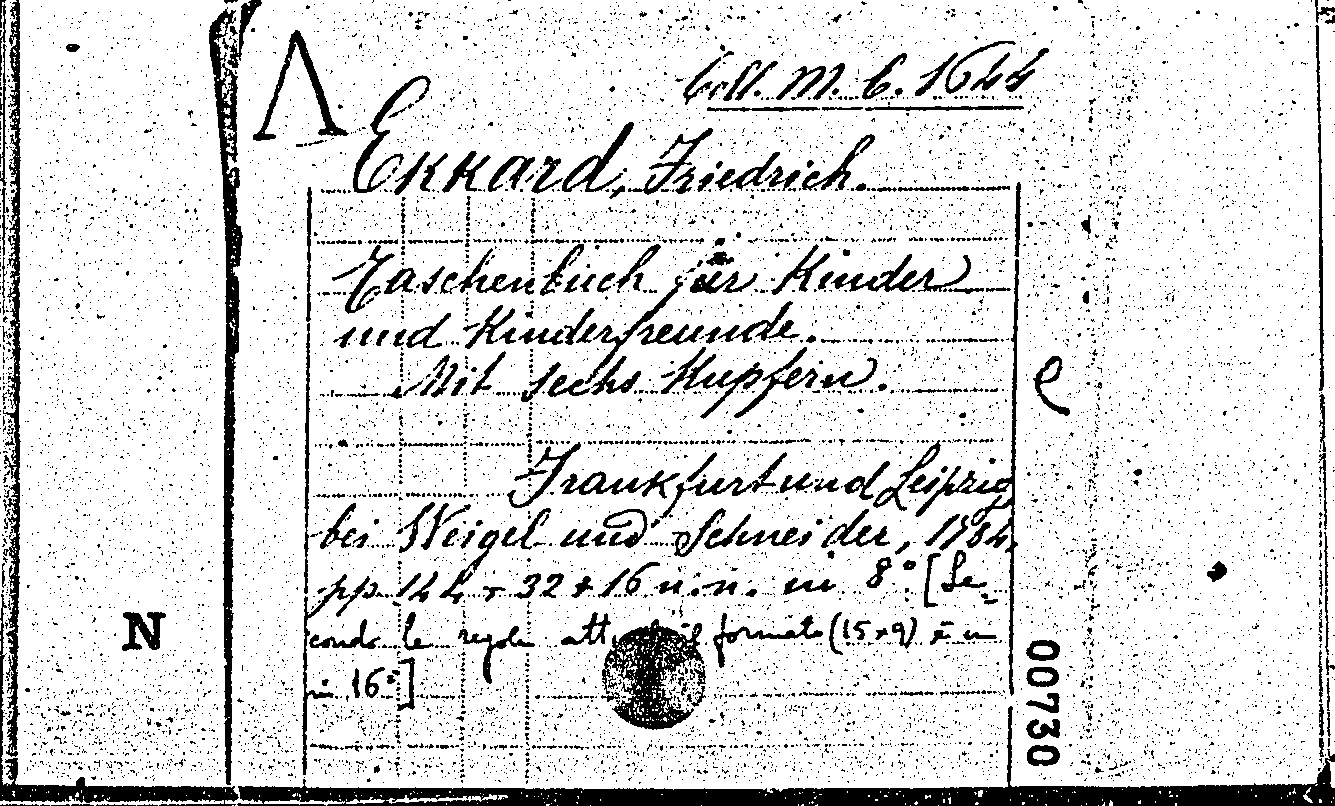 Λ
Coll. M. C. 1644
Ekkard, Friedrich.
Taschenbuch für Kinder
und Kinderfreunde.
Mit sechs Kupfern.
e
Frankfurt und Leipzig,
bei Weigel und Schneider, 1784.
pp. 144 + 32 + 16 n.n. in 8° [Se-
condo le regole il formato (15x9) è in
in 16°]
N
00730